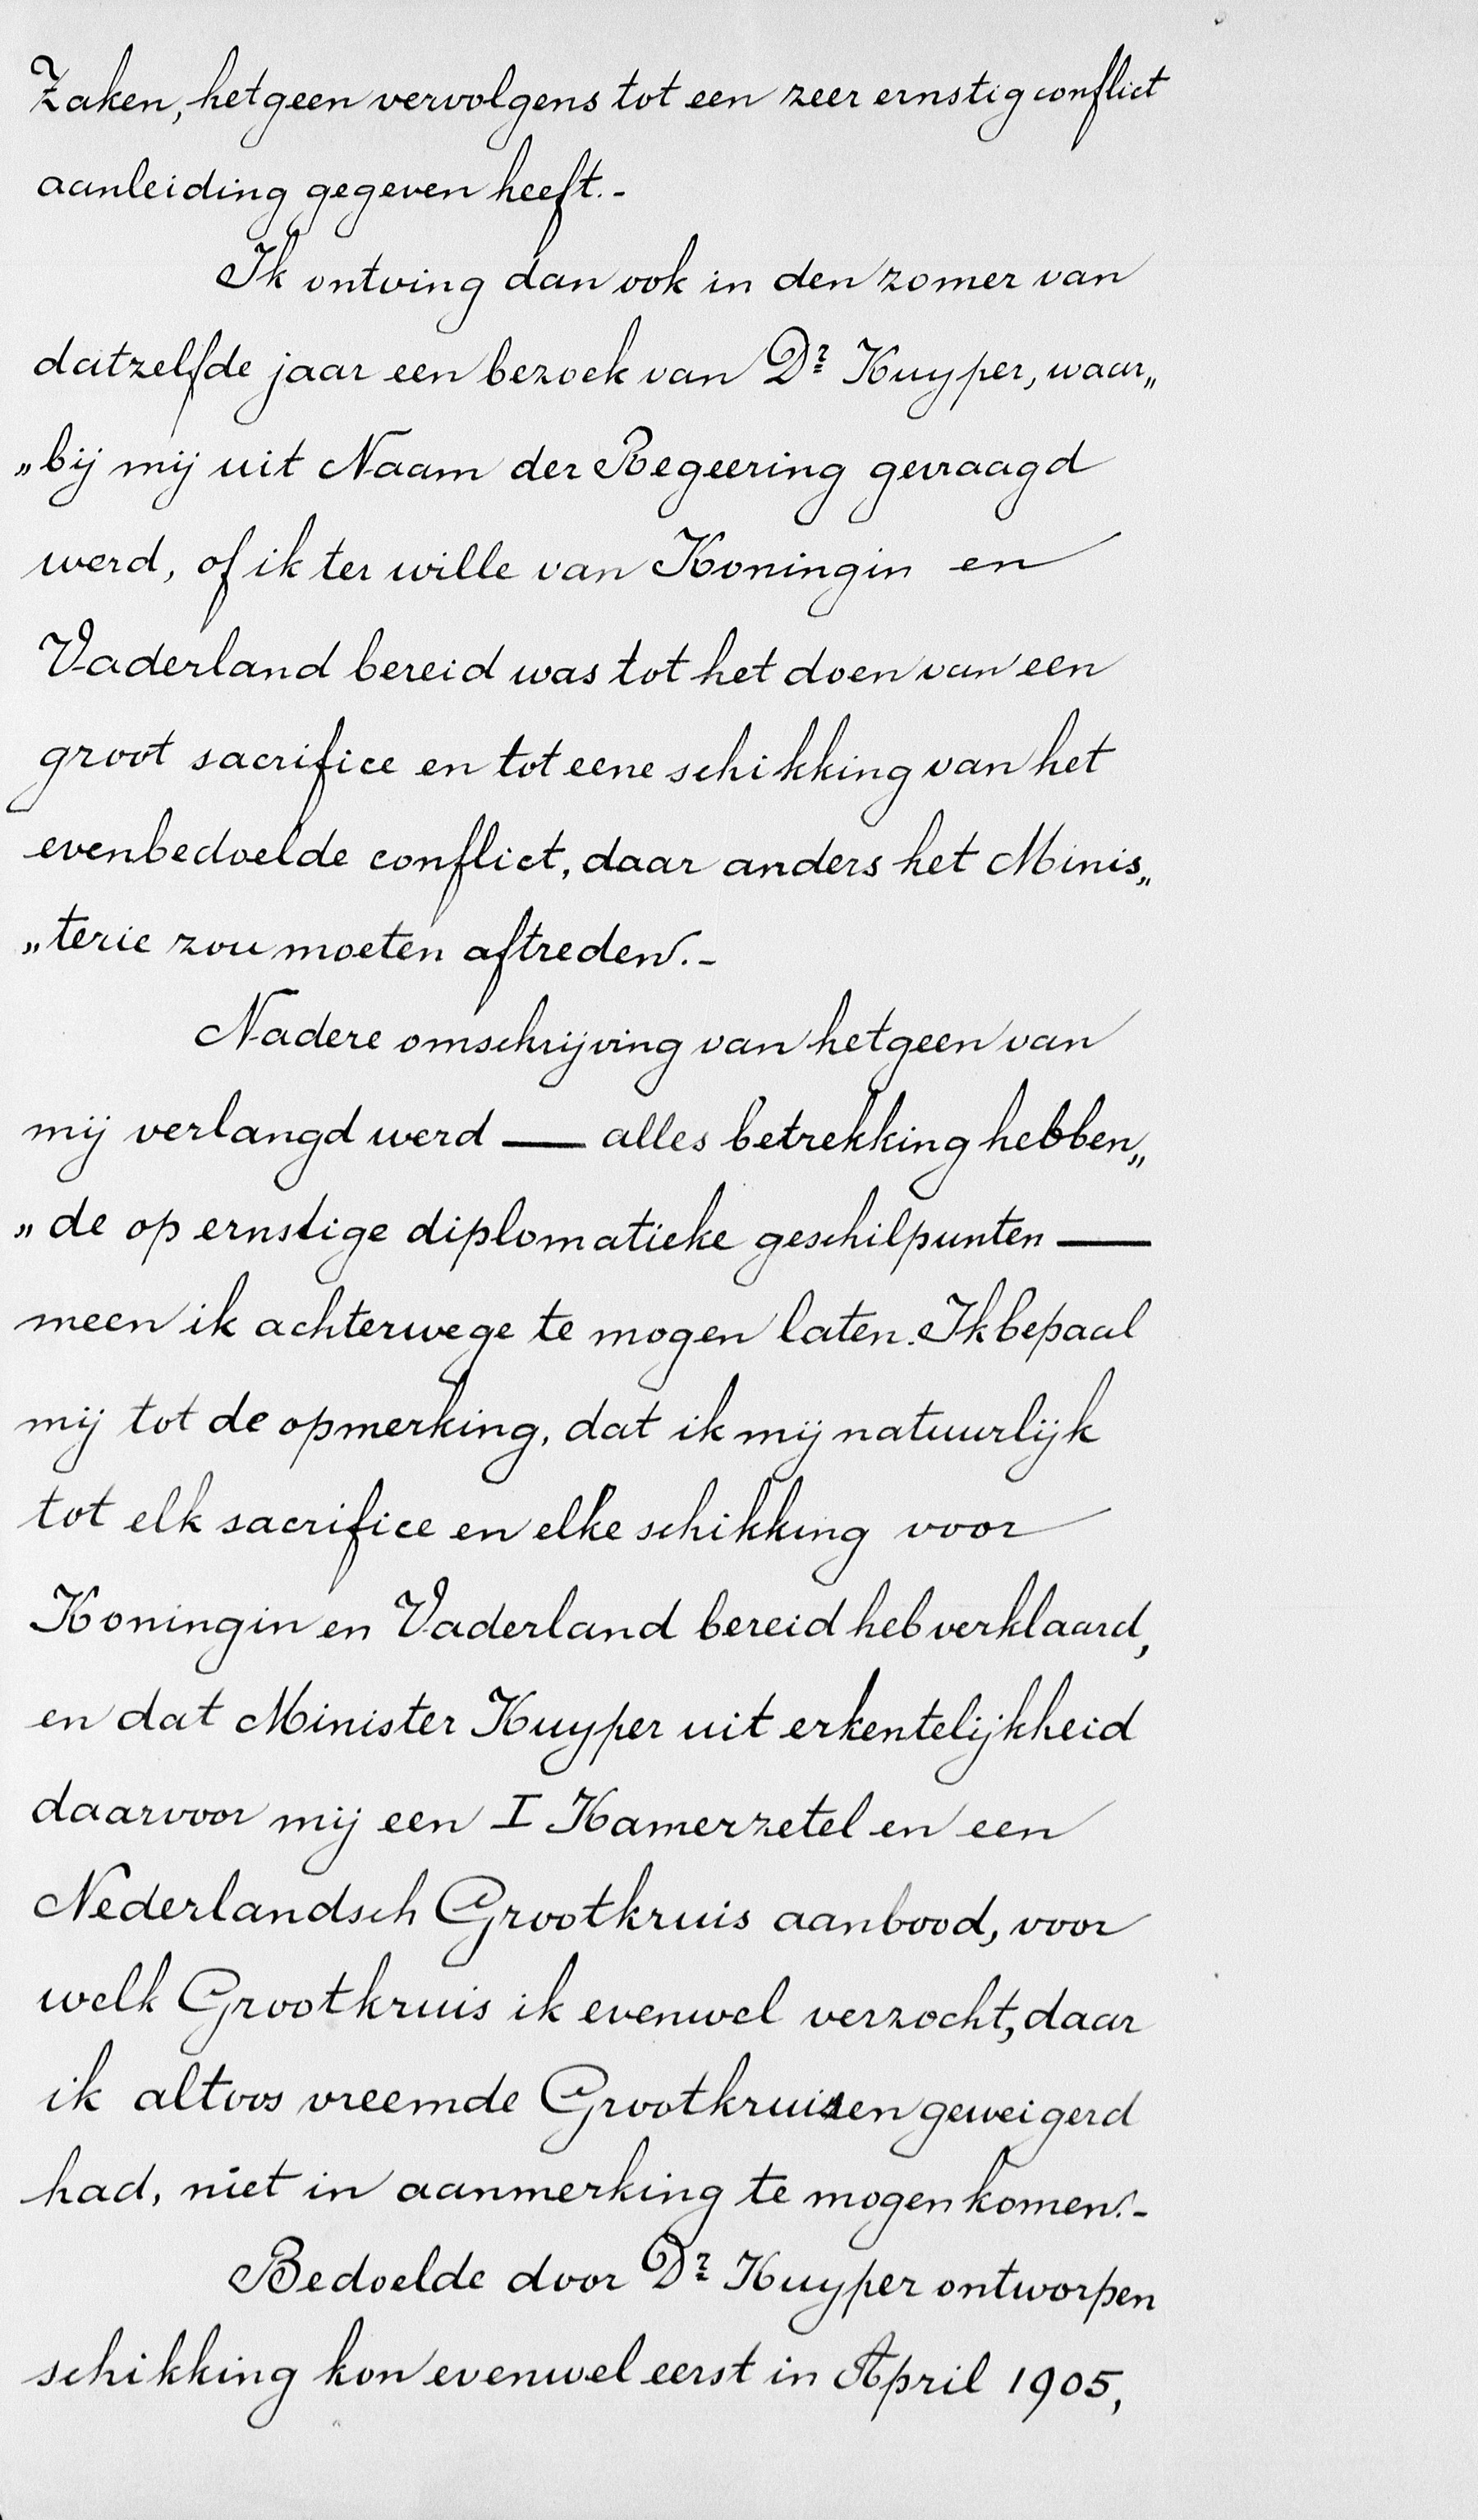 Zaken, hetgeen vervolgens tot een zeer ernstig conflict
aanleiding gegeven heeft.-
Ik ontving dan ook in den zomer van
datzelfde jaar een bezoek van Dr Kuyper, waar„
„bij mij uit Naam der Regeering gevraagd
werd, of ik ter wille van Koningin en
Vaderland bereid was tot het doen van een
groot sacrifice en tot eene schikking van het
evenbedoelde conflict, daar anders het Minis„
„terie zou moeten aftreden.-
Nadere omschrijving van hetgeen van
mij verlangd werd — alles betrekking hebben„
„de op ernstige diplomatieke geschilpunten —
meen ik achterwege te mogen laten. Ik bepaal
mij tot de opmerking, dat ik mij natuurlijk
tot elk sacrifice en elke schikking voor
Koningin en Vaderland bereid heb verklaard,
en dat Minister Kuyper uit erkentelijkheid
daarvoor mij een I Kamerzetel en een
Nederlandsch Grootkruis aanbood, voor
welk Grootkruis ik evenwel verzocht, daar
ik altoos vreemde Grootkruisen geweigerd
had, niet in aanmerking te mogen komen.-
Bedoelde door Dr Kuyper ontworpen
schikking kon evenwel eerst in April 1905,